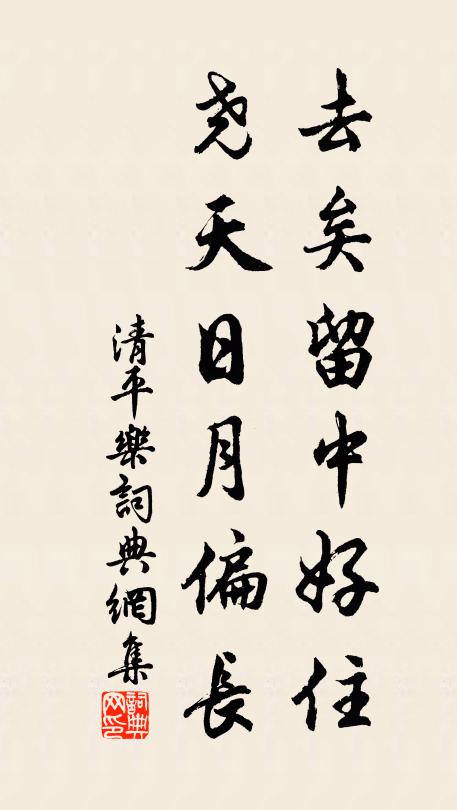 去矣留中好住
尧天日月偏長
清平樂詞典網集
詞典网印